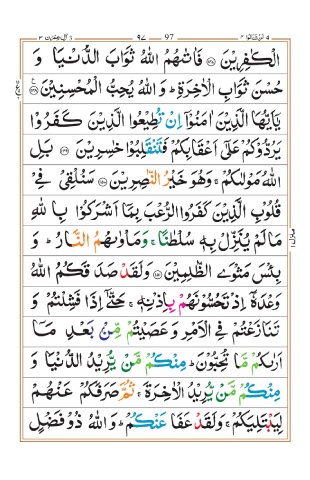 الْكٰفِرِيْنَ ۝۱۴۷ فَاٰتٰىهُمُ اللّٰهُ ثَوَابَ الدُّنْيَا وَ
حُسْنَ ثَوَابِ الْاٰخِرَةِ ؕ وَ اللّٰهُ يُحِبُّ الْمُحْسِنِيْنَ ۝۱۴۸
يٰۤاَيُّهَا الَّذِيْنَ اٰمَنُوْۤا اِنْ تُطِيْعُوا الَّذِيْنَ كَفَرُوْا
يَرُدُّوْكُمْ عَلٰۤى اَعْقَابِكُمْ فَتَنْقَلِبُوْا خٰسِرِيْنَ ۝۱۴۹ بَلِ
اللّٰهُ مَوْلٰىكُمْ ۚ وَهُوَ خَيْرُ النّٰصِرِيْنَ ۝۱۵۰ سَنُلْقِيْ فِيْ
قُلُوْبِ الَّذِيْنَ كَفَرُوا الرُّعْبَ بِمَاۤ اَشْرَكُوْا بِاللّٰهِ
مَا لَمْ يُنَزِّلْ بِهٖ سُلْطٰنًا ۚ وَمَاْوٰىهُمُ النَّارُ ؕ وَ
بِئْسَ مَثْوَى الظّٰلِمِيْنَ ۝۱۵۱ وَلَقَدْ صَدَقَكُمُ اللّٰهُ
وَعْدَهٗۤ اِذْ تَحُسُّوْنَهُمْ بِاِذْنِهٖ ۚ حَتّٰۤى اِذَا فَشِلْتُمْ وَ
تَنَازَعْتُمْ فِي الْاَمْرِ وَعَصَيْتُمْ مِّنْۢ بَعْدِ مَاۤ
اَرٰىكُمْ مَّا تُحِبُّوْنَ ؕ مِنْكُمْ مَّنْ يُّرِيْدُ الدُّنْيَا وَ
مِنْكُمْ مَّنْ يُّرِيْدُ الْاٰخِرَةَ ۚ ثُمَّ صَرَفَكُمْ عَنْهُمْ
لِيَبْتَلِيَكُمْ ۚ وَلَقَدْ عَفَا عَنْكُمْ ؕ وَاللّٰهُ ذُوْ فَضْلٍ
97
۹۷